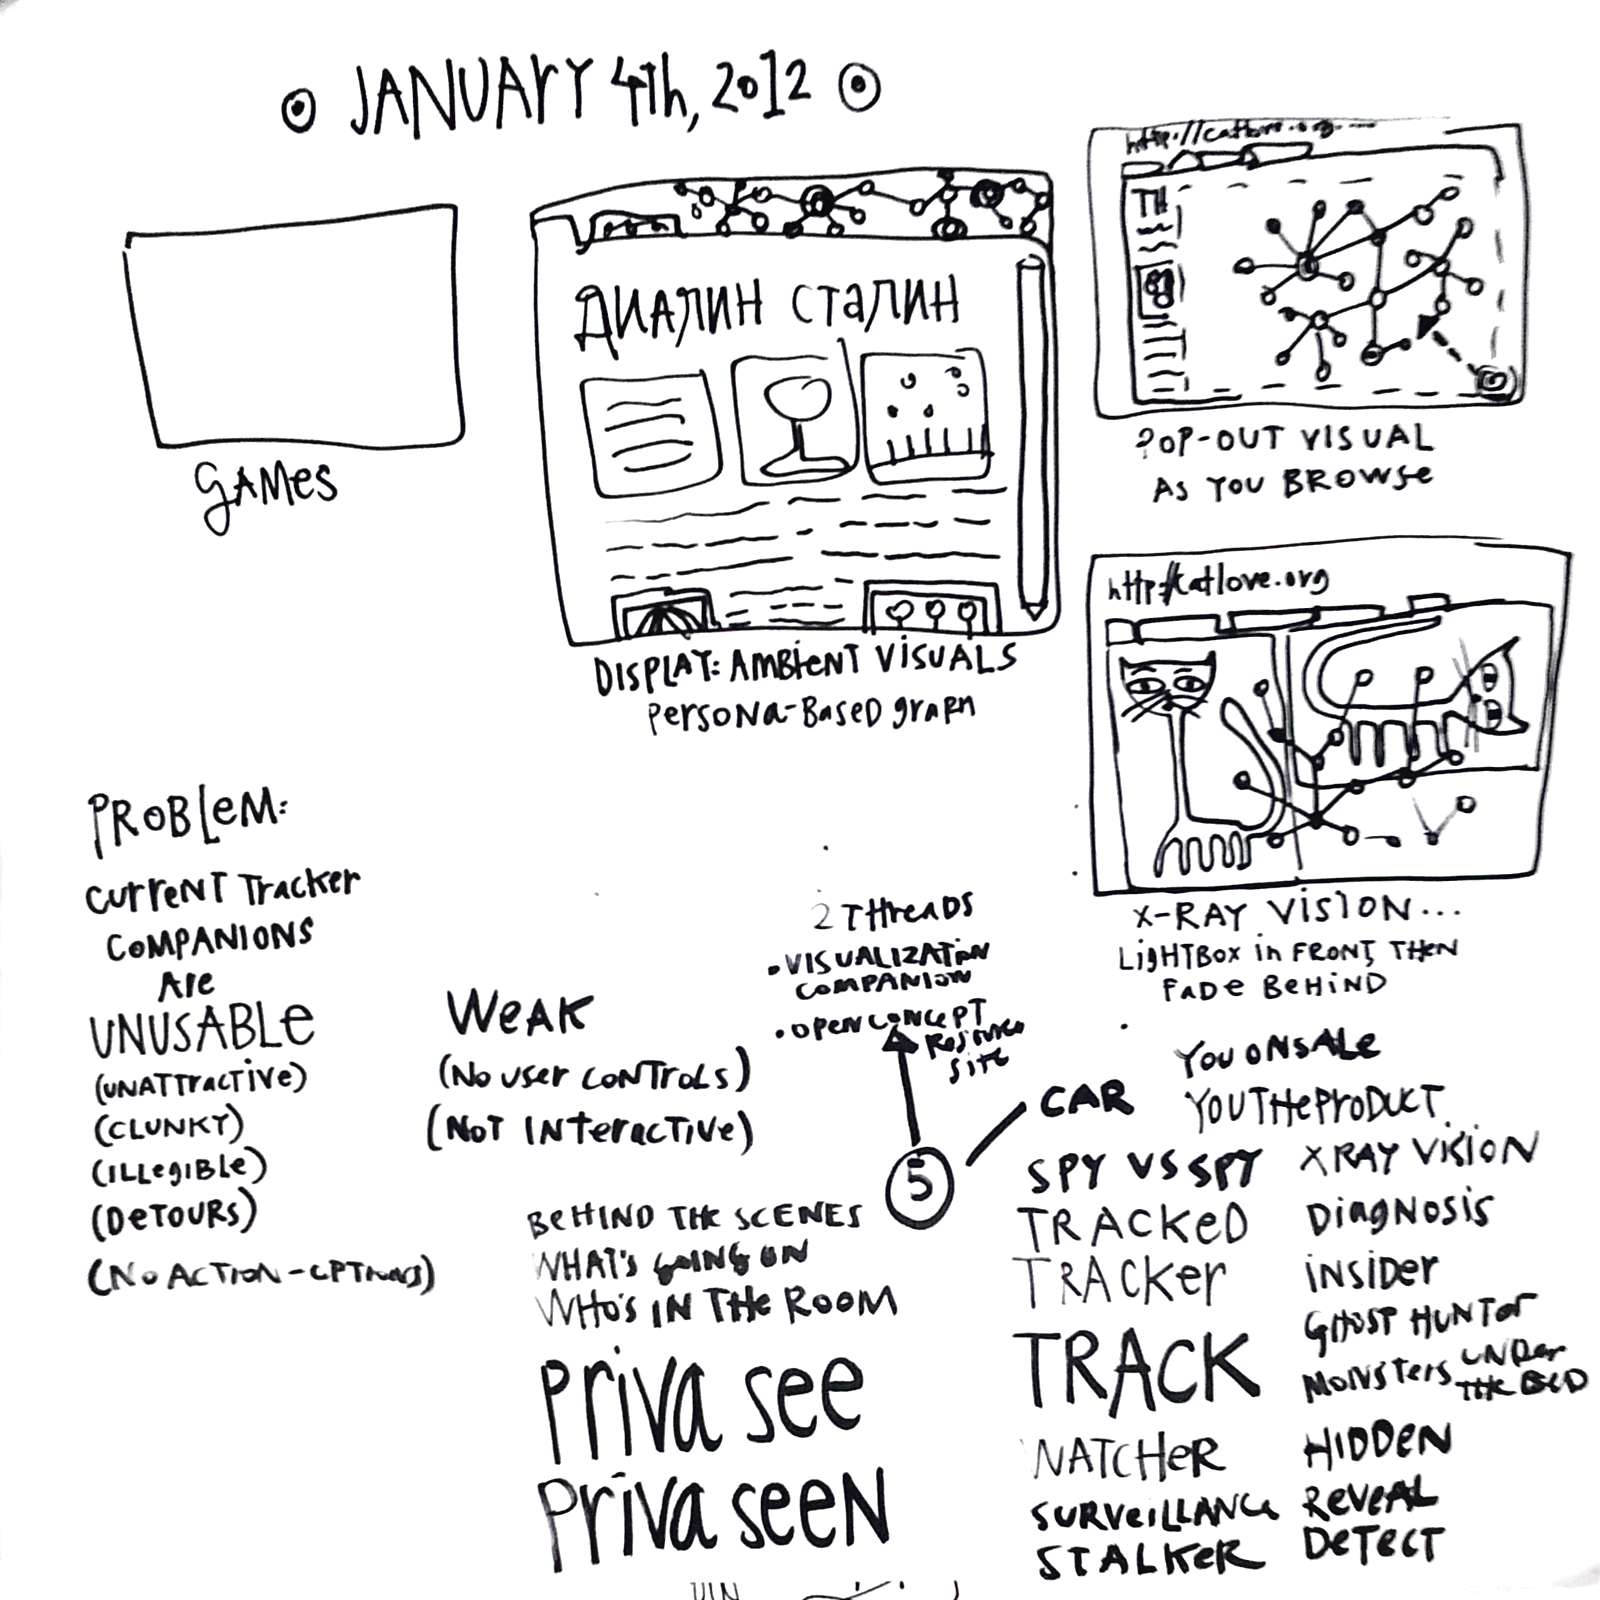 JANUARY 4Th, 2012
GAMES
ДИАЛИН СТАЛИН
DISPLAY: AMBIENT VISUALS
PERSONA-BASED GRAPH
TH
POP-OUT VISUAL
AS YOU BROWSE
http://catlove.org
X-RAY VISION...
LIGHTBOX IN FRONT, THEN
FADE BEHIND
PROBLEM:
CURRENT TRACKER
COMPANIONS
ARE
UNUSABLE
(UNATTRACTIVE)
(CLUNKY)
(ILLEGIBLE)
(DETOURS)
(NO ACTION-OPTIONS)
WEAK
(NO USER CONTROLS)
(NOT INTERACTIVE)
2 THREADS
• VISUALIZATION
COMPANION
• OPEN CONCEPT
RESOURCE
SITE
5
CAR
BEHIND THE SCENES
WHAT'S GOING ON
WHO'S IN THE ROOM
Priva see
Priva seen
YOU ON SALE
YOU THE PRODUCT
SPY VS SPY
TRACKED
TRACKER
TRACK
WATCHER
SURVEILLANCE
STALKER
XRAY VISION
DIAGNOSIS
INSIDER
GHOST HUNTER
MONSTERS UNDER
THE BED
HIDDEN
REVEAL
DETECT